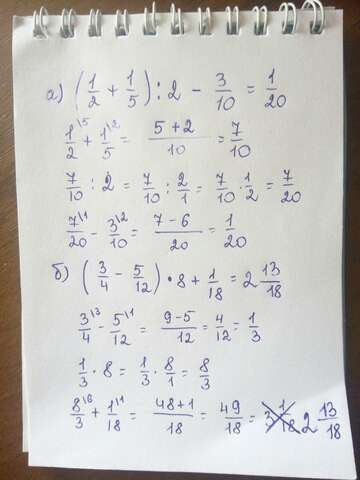 а) (1/2 + 1/5) : 2 - 3/10 = 1/20
1\5/2 + 1\2/5 = 5+2/10 = 7/10
7/10 : 2 = 7/10 : 2/1 = 7/10 · 1/2 = 7/20
7\1/20 - 3\2/10 = 7-6/20 = 1/20
б) (3/4 - 5/12) · 8 + 1/18 = 2 13/18
3\3/4 - 5\1/12 = 9-5/12 = 4/12 = 1/3
1/3 · 8 = 1/3 · 8/1 = 8/3
8\6/3 + 1\1/18 = 48+1/18 = 49/18 = 3 1/18 2 13/18